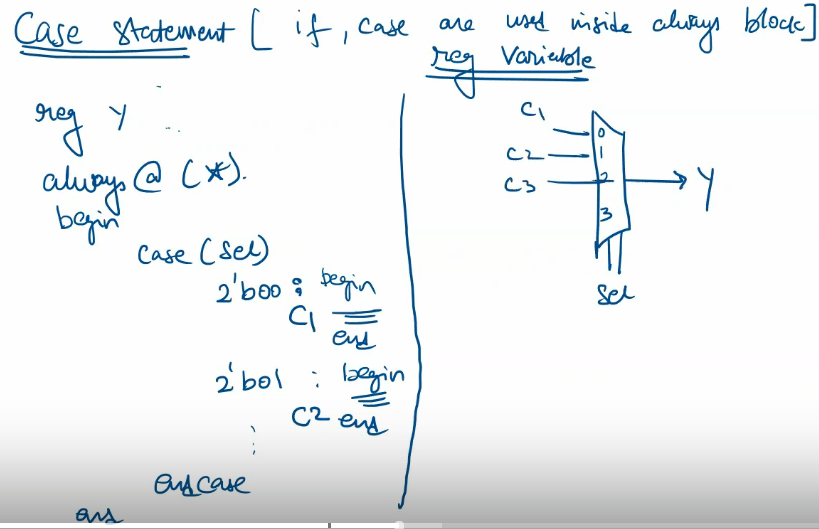 Case Statement [ if, case are used inside always block]
reg Variable
reg Y
always @ (*).
begin
case (sel)
2'b00 : begin
C1
end
2'b01 : begin
C2 end
endcase
end
C1
0
C2
1
C3
2
Y
3
Sel